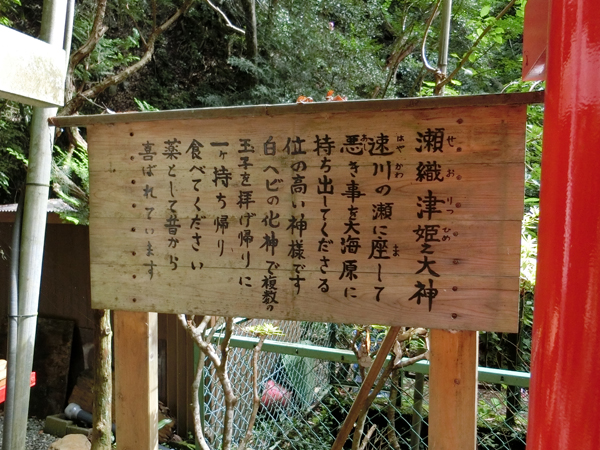 瀬織津姫之大神
せおりつひめ
速川の瀬に座して
はやかわ
ま
悪き事を大海原に
持ち出してくださる
位の高い神様です
白ヘビの化神で複数の
玉子を拝げ帰りに
一ヶ持ち帰り
食べてください
薬として昔から
喜ばれています